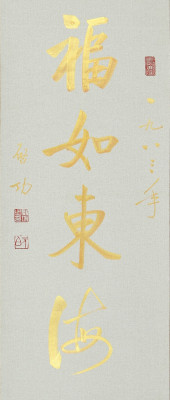 一九八三年
福如東海
啓功